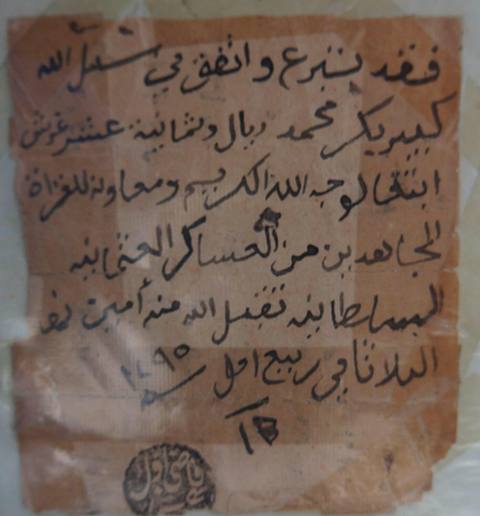 فقد تبرع وانفق في سبيل الله
كبير بكر محمد ريال وثمانية عشر غرش
ابتغا لوجه الله الكريم ومعاونة للغزاة
المجاهدين من العساكر العثمانيه
السلطانيه تقبل الله منه أمين
الثلاثا في ربيع اول سنه